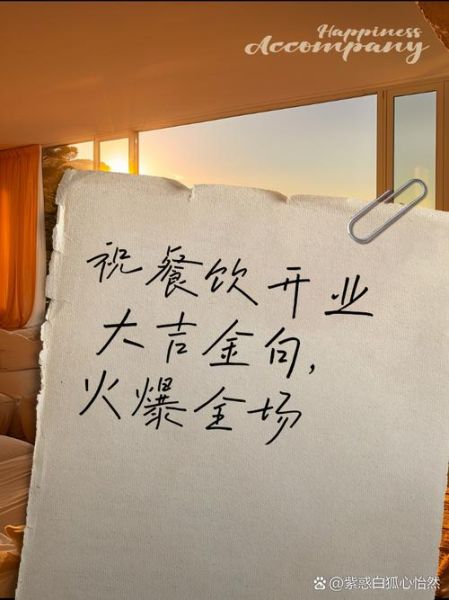 Happiness
Accompany
祝餐饮开业
大吉金句,
火爆全场
@紫惑白狐心怡然